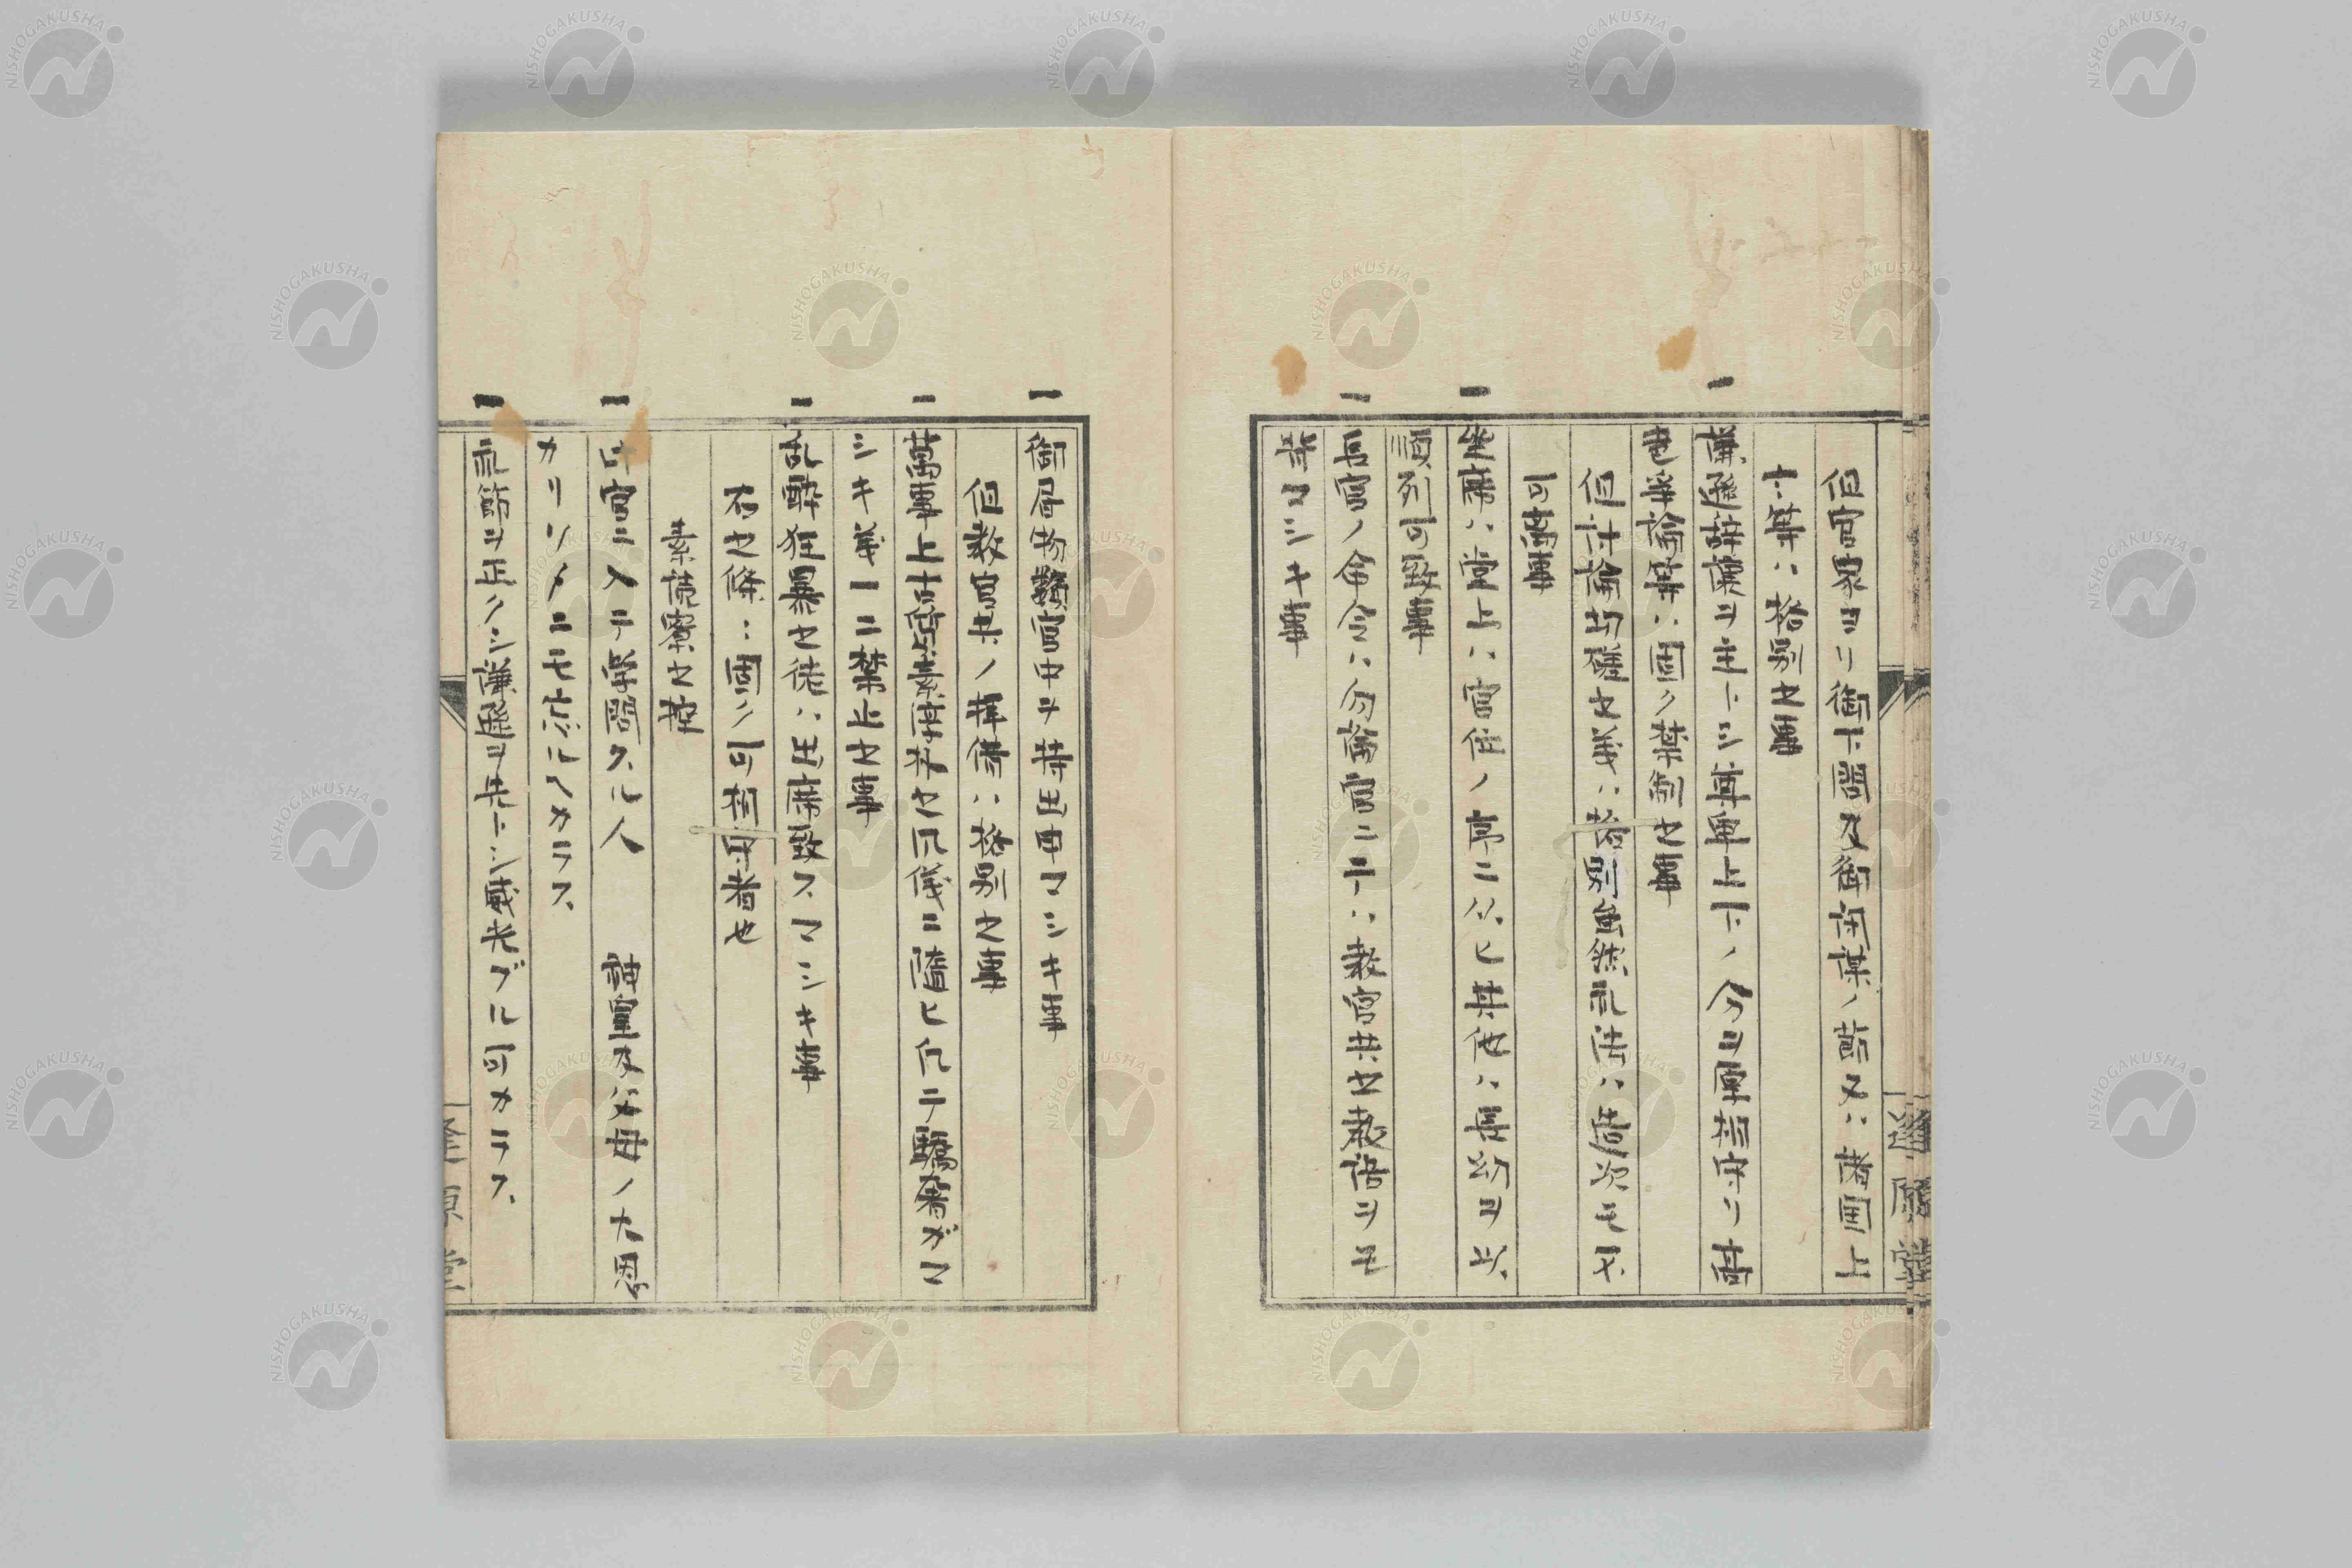 但官家ヨリ御下問及御開業ノ節又ハ諸国上
木等ハ格別之事
一 謙遜辞譲ヲ主トシ尊卑上下ノ分ヲ厚相守リ
争論等ハ固ク禁制之事
但討論切磋之義ハ格別雖然礼法ハ造次モ不
可
一 坐席ハ堂上ハ官位ノ高ニ从ヒ其他ハ長幼ヲ以
順列可致事
一 長官ノ命令ハ勿論官ニテハ教官共之教諭ヲ
マシキ事
一 御局物類官中ヲ持出申マシキ事
但教官共ノ拝借ハ格別之事
一 萬事上古質素淳朴之風儀ニ随ヒ仮ニテ驕奢ガマ
シキ義一二禁止之事
一 乱酔狂暴之徒ハ出席致スマシキ事
右之條々固ク可相守者也
素読寮之掟
一 此官ニ入テ学問スル人 神皇及父母ノ大恩
カリソメニモ忘ルヘカラス
一 礼節ヲ正クシ謙遜ヲ先トシ威光ブル可カラス